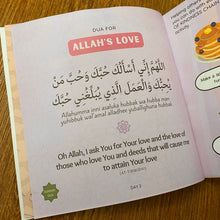 DUA FOR
ALLAH'S LOVE
اللَّهُمَّ إِنِّي أَسْأَلُكَ حُبَّكَ وَحُبَّ مَنْ
يُحِبُّكَ وَالْعَمَلَ الَّذِي يُبَلِّغُنِي حُبَّكَ
Allahumma inni asaluka hubbek wa hubba man
yuhibbuk wal'amal alladhee yuballighuna hubbak
Oh Allah, I ask You for Your love and the love of
those who love You and deeds that will cause me
to attain Your love
(AT-TIRMIDHI)
DAY 2
KINDNESS CHAIN